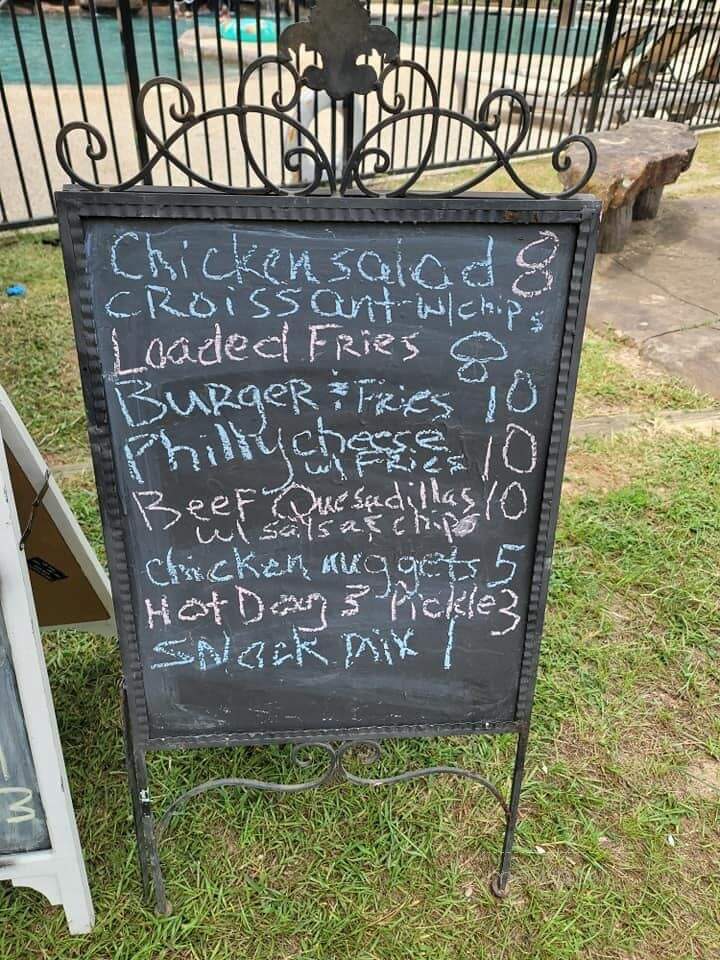 Chicken salad 8
CROISSant w/chips
Loaded FRies 8
BURgER & FRies 10
Philly cheese 10
w/ FRies
BeeF Quesadillas 10
w/ salsa & chips
chicken nuggets 5
Hot Dog 3 Pickle 3
SNack mix 1
3